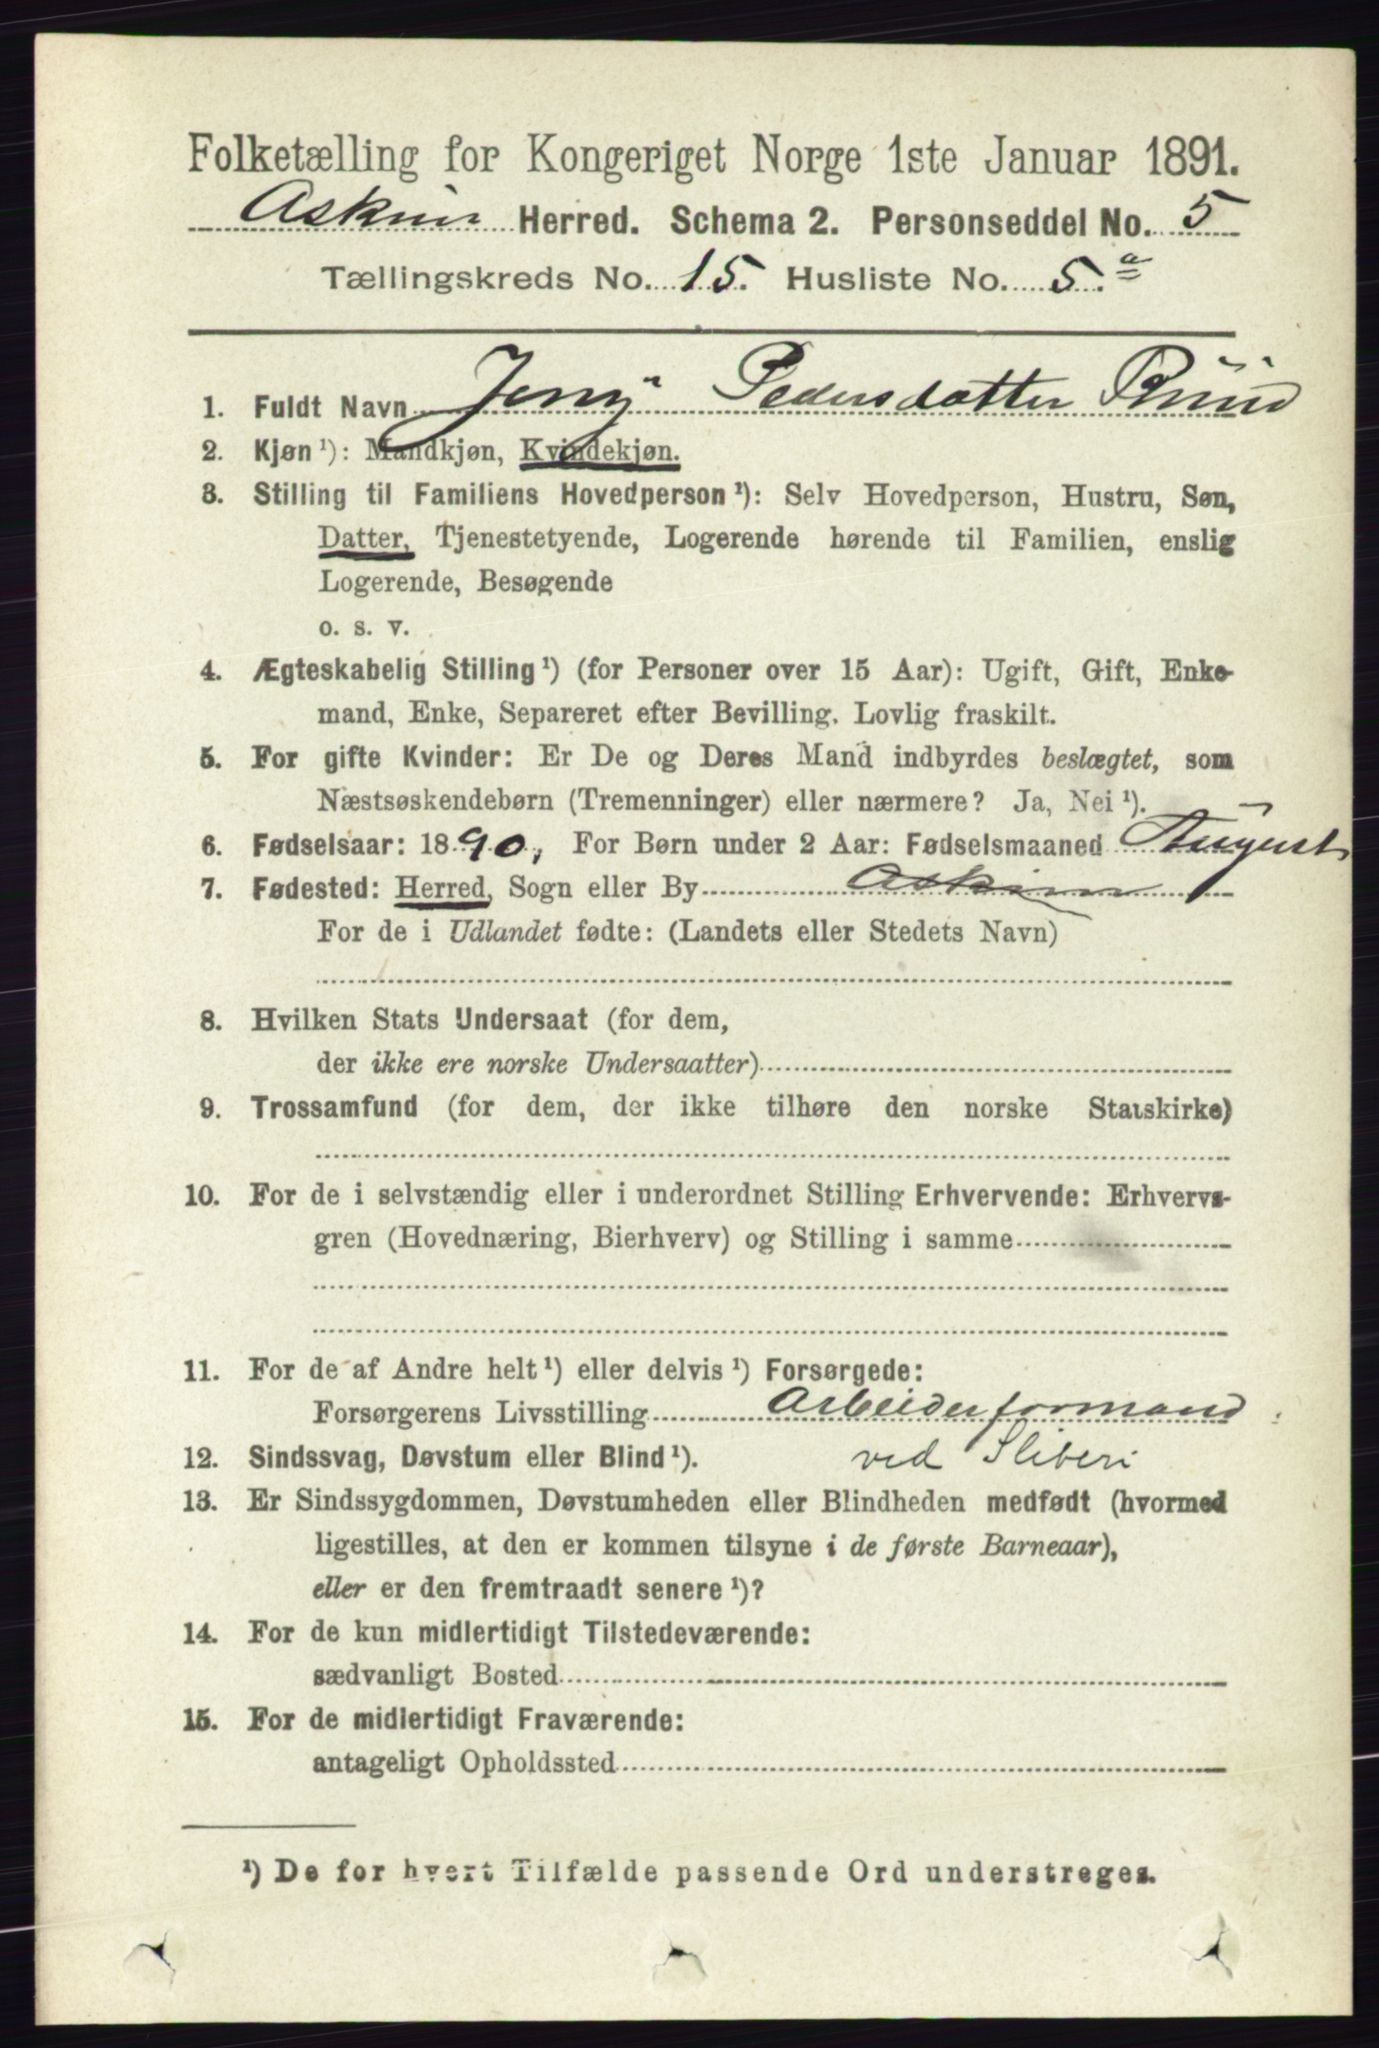 Folketælling for Kongeriget Norge 1ste Januar 1891.
Askim Herred. Schema 2. Personseddel No. 5
Tællingskreds No. 15. Husliste No. 5.a
1. Fuldt Navn Jeny Pedersdatter
2. Kjøn ¹): Mandkjøn, Kvindekjøn.
3. Stilling til Familiens Hovedperson ¹): Selv Hovedperson, Hustru, Søn,
Datter, Tjenestetyende, Logerende hørende til Familien, enslig
Logerende, Besøgende
o. s. v.
4. Ægteskabelig Stilling ¹) (for Personer over 15 Aar): Ugift, Gift, Enke-
mand, Enke, Separeret efter Bevilling. Lovlig fraskilt.
5. For gifte Kvinder: Er De og Deres Mand indbyrdes beslægtet, som
Næstsøskendebørn (Tremenninger) eller nærmere? Ja, Nei ¹).
6. Fødselsaar: 1890, For Børn under 2 Aar: Fødselsmaaned August
7. Fødested: Herred, Sogn eller By Askim
For de i Udlandet fødte: (Landets eller Stedets Navn)
8. Hvilken Stats Undersaat (for dem,
der ikke ere norske Undersaatter)
9. Trossamfund (for dem, der ikke tilhøre den norske Statskirke)
10. For de i selvstændig eller i underordnet Stilling Erhvervende: Erhvervs-
gren (Hovednæring, Bierhverv) og Stilling i samme
11. For de af Andre helt ¹) eller delvis ¹) Forsørgede:
Forsørgerens Livsstilling Arbeiderformand
12. Sindssvag, Døvstum eller Blind ¹). ved Sliberi
13. Er Sindssygdommen, Døvstumheden eller Blindheden medfødt (hvormed
ligestilles, at den er kommen tilsyne i de første Barneaar),
eller er den fremtraadt senere ¹)?
14. For de kun midlertidigt Tilstedeværende:
sædvanligt Bosted
15. For de midlertidigt Fraværende:
antageligt Opholdssted
¹) De for hvert Tilfælde passende Ord understreges.